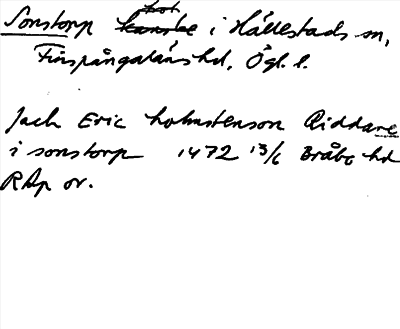 Sonstorp i Hällestads sn,
Finspångaläns hd, Ögl. l.
Jach Eric holmstenson Riddare
i sonstorp 1472 13/6 Bråbo hd
RAp or.